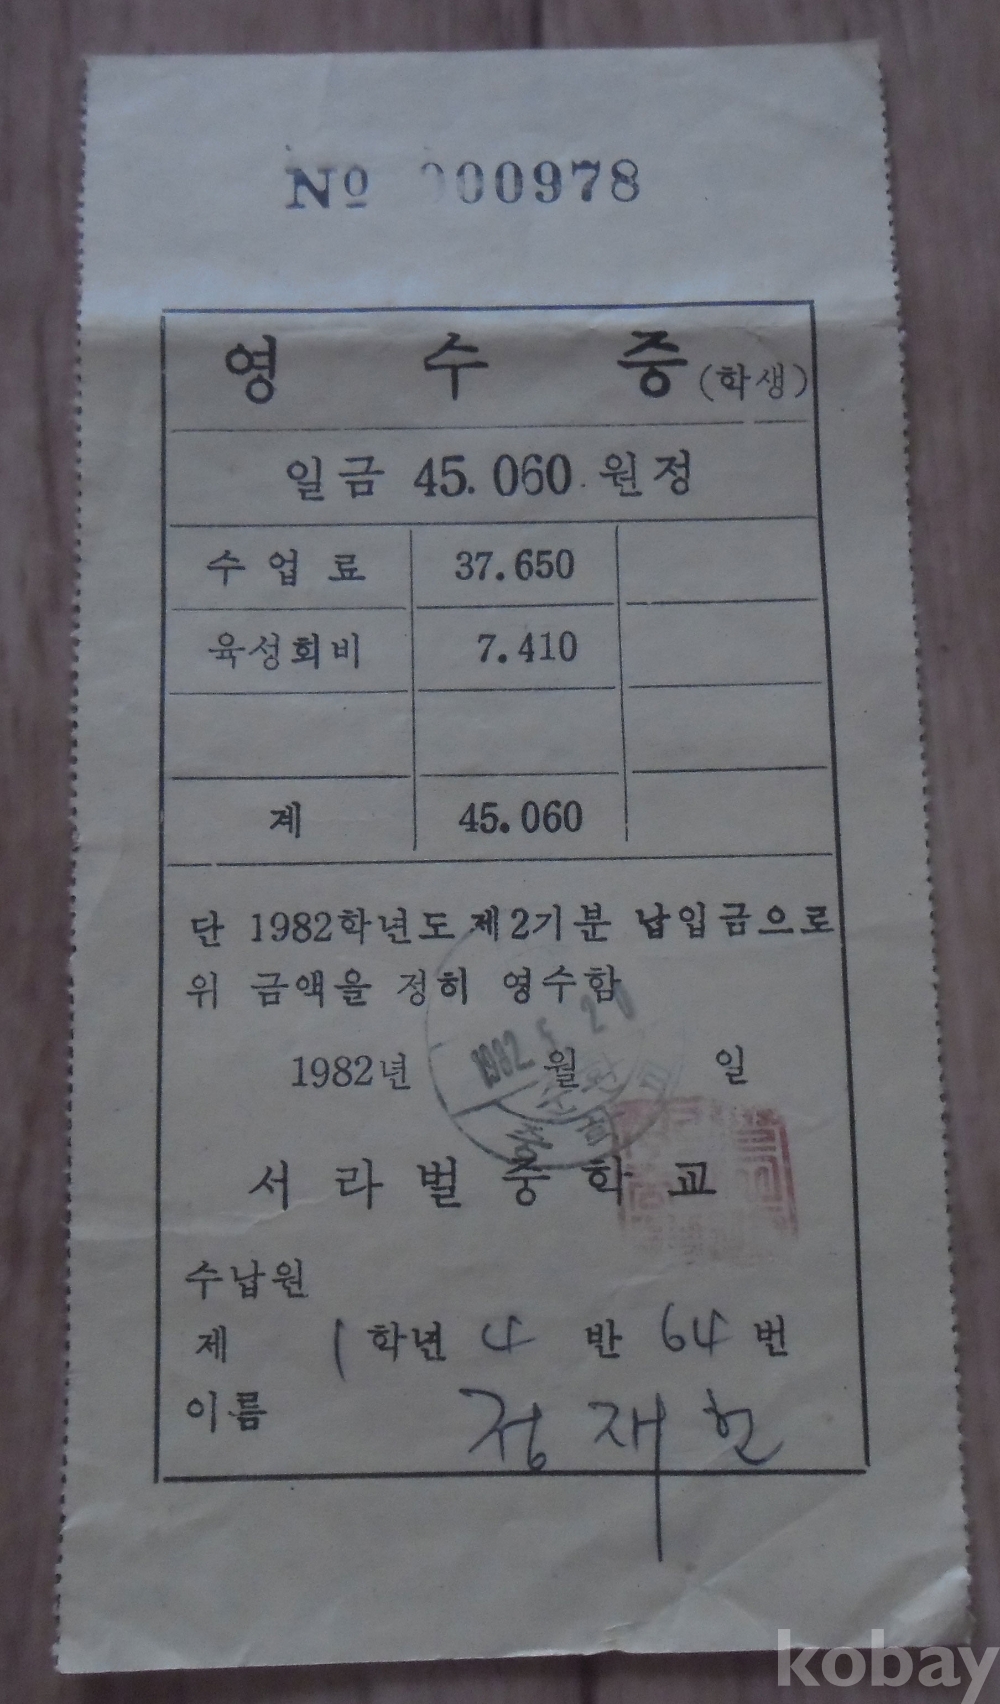 No 000978
영 수 증 (학생)
일금 45.060 원정
수업료 37.650
육성회비 7.410
계 45.060
단 1982학년도 제2기분 납입금으로
위 금액을 정히 영수함
1982년 월 일
1982. 5. 2
서라벌중학교
수납원
제 1 학년 4 반 64 번
이름 정재헌
kobay